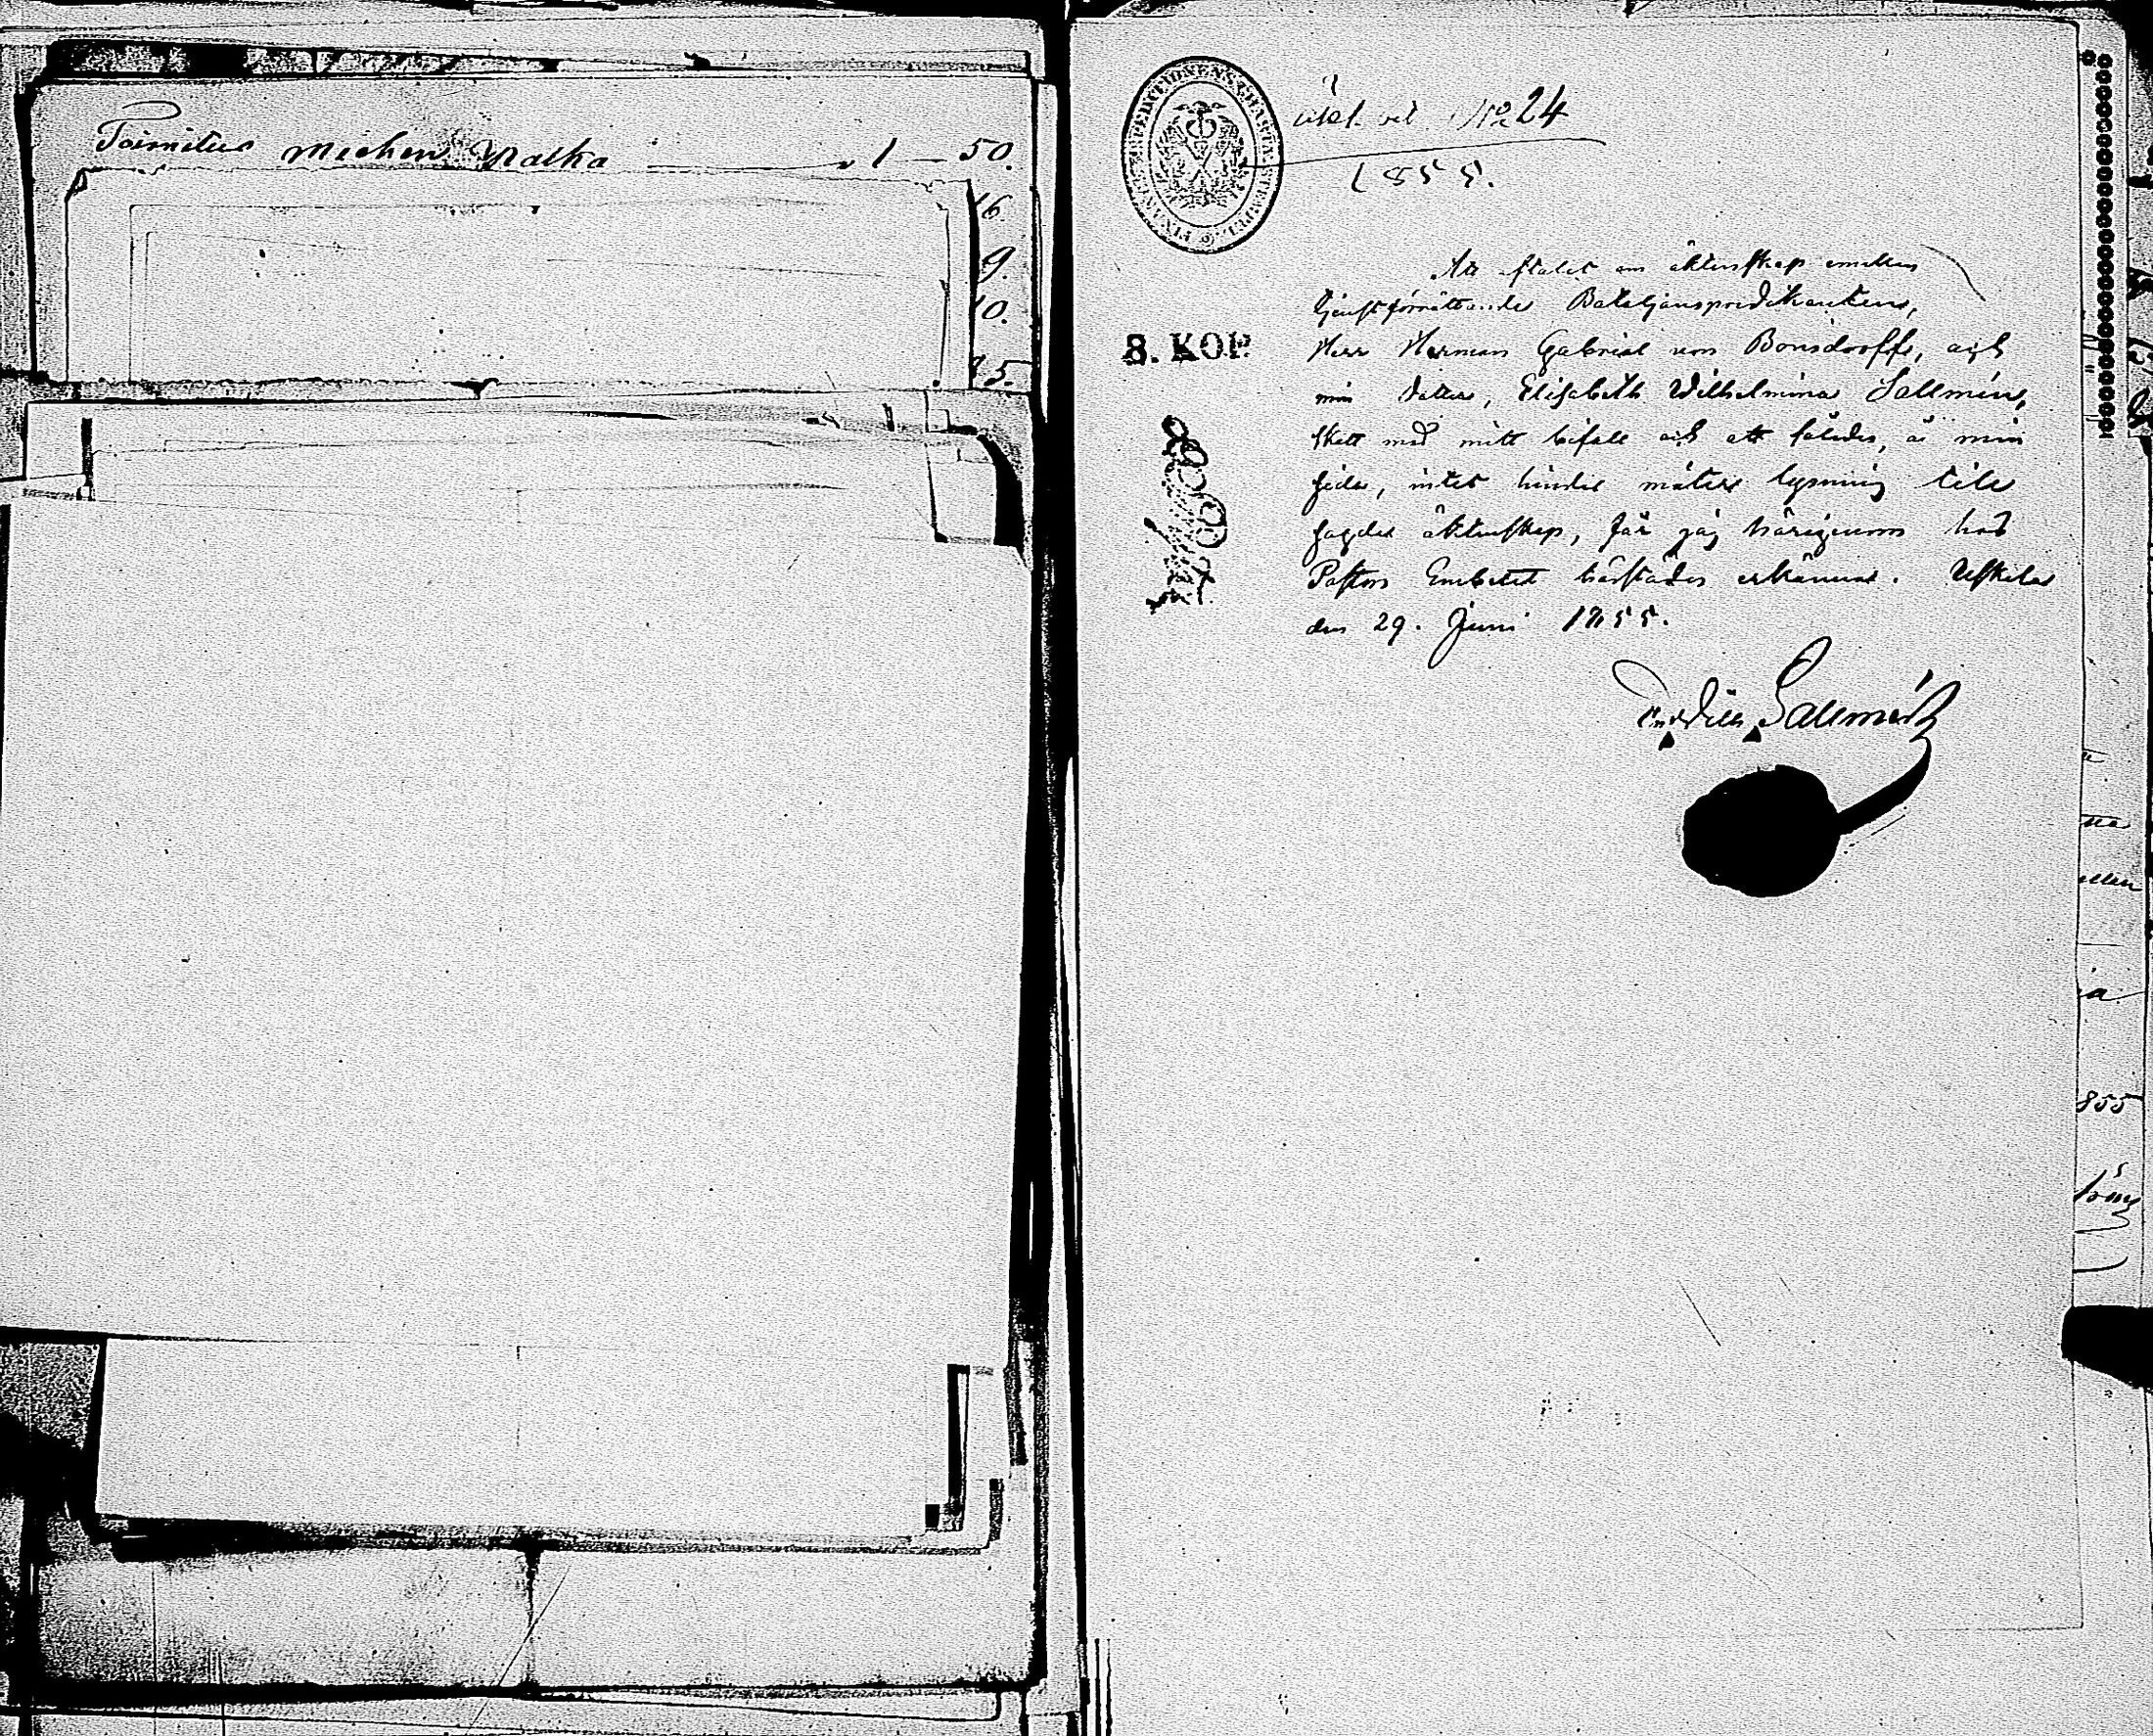 Toimitus miehen Palka 1 — 50.
16
9.
10.
5.
FINANS EXPEDITIONENS CHARTÆ STEMPEL
No 24
1855.
8. KOP.
Att aftalet om äktenskap emellan
tjenstförrättande Bataljonspredikanten,
Herr Herman Gabriel von Bonsdorff, och
min dotter, Elisabeth Wilhelmina Sallmén,
skett med mitt bifall och att således, å min
sida, intet hinder möter lysning till
sagde äktenskap, får jag härigenom hos
Pastors Embetet härstädes erkänna. Ulfkila
den 29. Juni 1855.
Sallmén
tta
ellen
ia
855